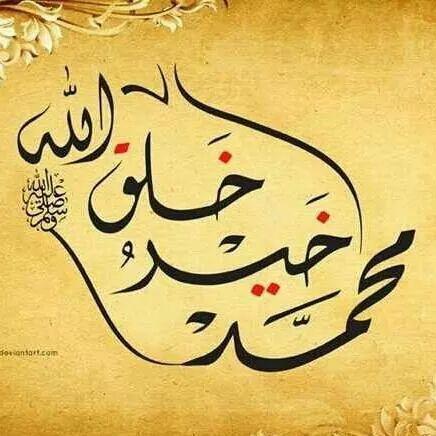 محمد
خير
خلق
الله
صلى الله عليه وسلم
deviantart.com